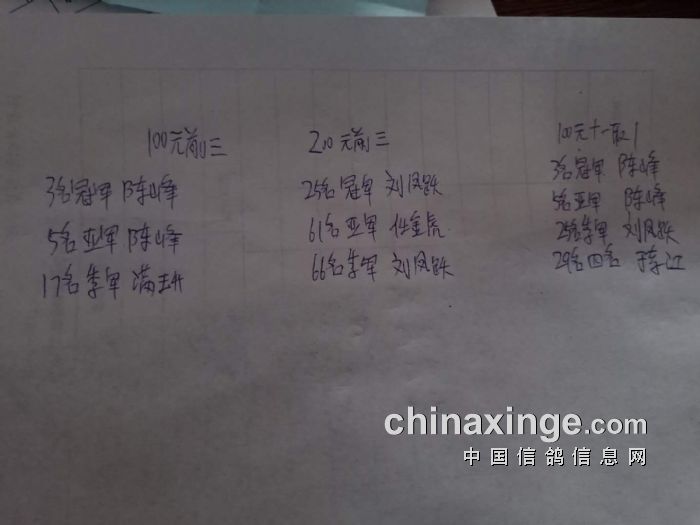 100元前三
3名冠军 陈峰
5名亚军 陈峰
17名季军 满玉升
200元前三
25名冠军 刘凤跃
61名亚军 任金虎
66名季军 刘凤跃
100元十一取1
3名冠军 陈峰
5名亚军 陈峰
25名季军 刘凤跃
29名四名 江
chinaxinge.com
中国信鸽信息网